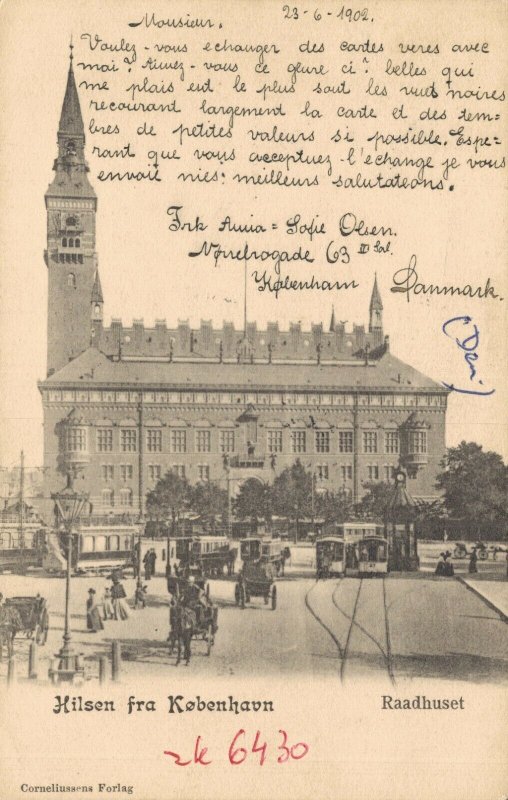 Monsieur. 23-6-1902.
Voulez-vous echanger des cartes veres avec
moi? Aimez-vous ce genre ci? belles qui
me plais eut le plus sout les vues noires
recourant largement la carte et des tem-
bres de petites valeurs si possible. Espe-
rant que vous acceptuez l'échange je vous
envoit mes meilleurs salutateons.
Frk Anna-Sofie Olsen.
Nørrebrogade 63 III Sal.
København Danmark.
(Den.)
Hilsen fra København
Raadhuset
zk 6430
Corneliussens Forlag